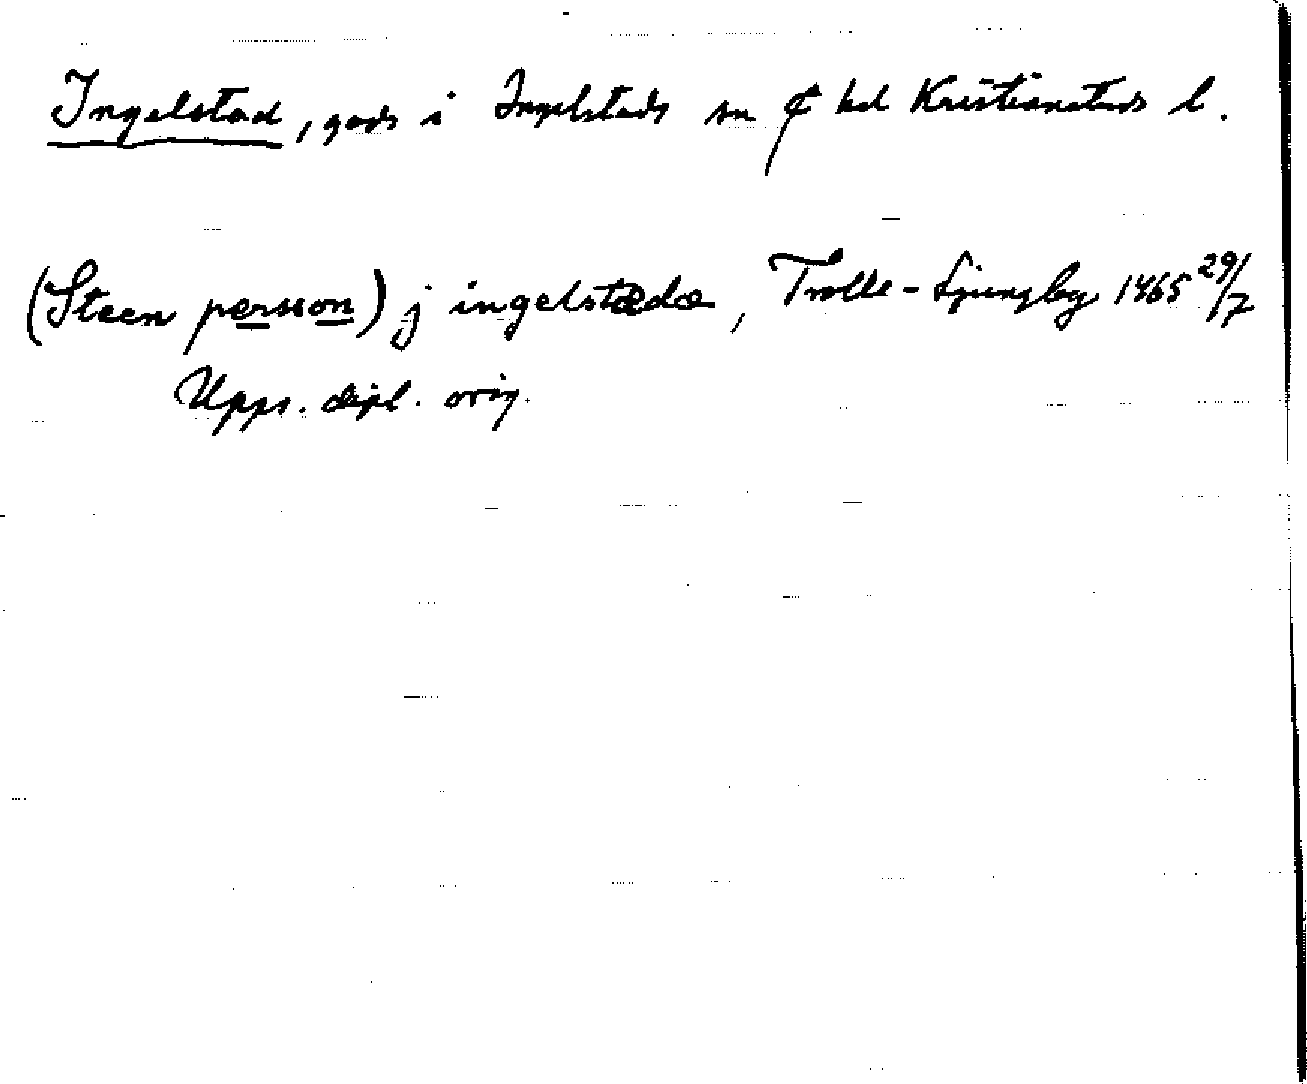 Ingelstad, gods i Ingelstads sn ₵ hd Kristianstads l.
(Steen persson) j ingelstædæ, Trolle-Ljungby 1465 29/7
Upps. dipl. orig.